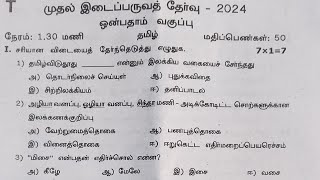 T
முதல் இடைப்பருவத் தேர்வு - 2024
ஒன்பதாம் வகுப்பு
நேரம்: 1.30 மணி தமிழ் மதிப்பெண்கள்: 50
I. சரியான விடையைத் தேர்ந்தெடுத்து எழுதுக. 7×1=7
1) தமிழ்விடுதூது ________ என்னும் இலக்கிய வகையைச் சேர்ந்தது
அ) தொடர்நிலைச் செய்யுள் ஆ) புதுக்கவிதை
இ) சிற்றிலக்கியம் ஈ) தனிப்பாடல்
2) அழியா வனப்பு, ஒழியா வனப்பு, சிந்தா மணி - அடிக்கோடிட்ட சொற்களுக்கான
இலக்கணக்குறிப்பு
அ) வேற்றுமைத்தொகை ஆ) பண்புத்தொகை
இ) வினைத்தொகை ஈ) ஈறுகெட்ட எதிர்மறைப்பெயரெச்சம்
3) "மிசை" என்பதன் எதிர்ச்சொல் என்ன?
அ) கீழே ஆ) மேலே இ) இசை ஈ) வசை